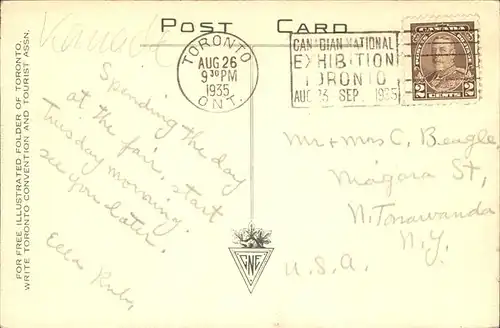 POST CARD
Kanada
TORONTO
AUG 26
9 30 PM
1935
ONT.
CANADIAN NATIONAL
EXHIBITION
TORONTO
AUG 23 SEP. 1935
CANADA
2 CENTS 2
Spending the day
at the fair, start
Tuesday morning.
see you later.
Ella Ruby
Mr + Mrs C. Beagle
Niagara St,
N. Tonawanda
N.Y.
U.S.A.
CNE
FOR FREE ILLUSTRATED FOLDER OF TORONTO,
WRITE TORONTO CONVENTION AND TOURIST ASSN.